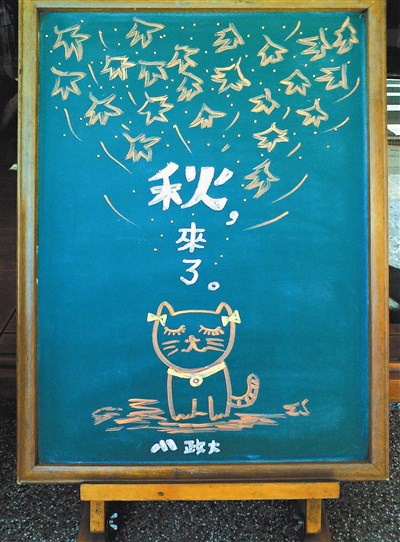 秋,
來
了。
小 政大